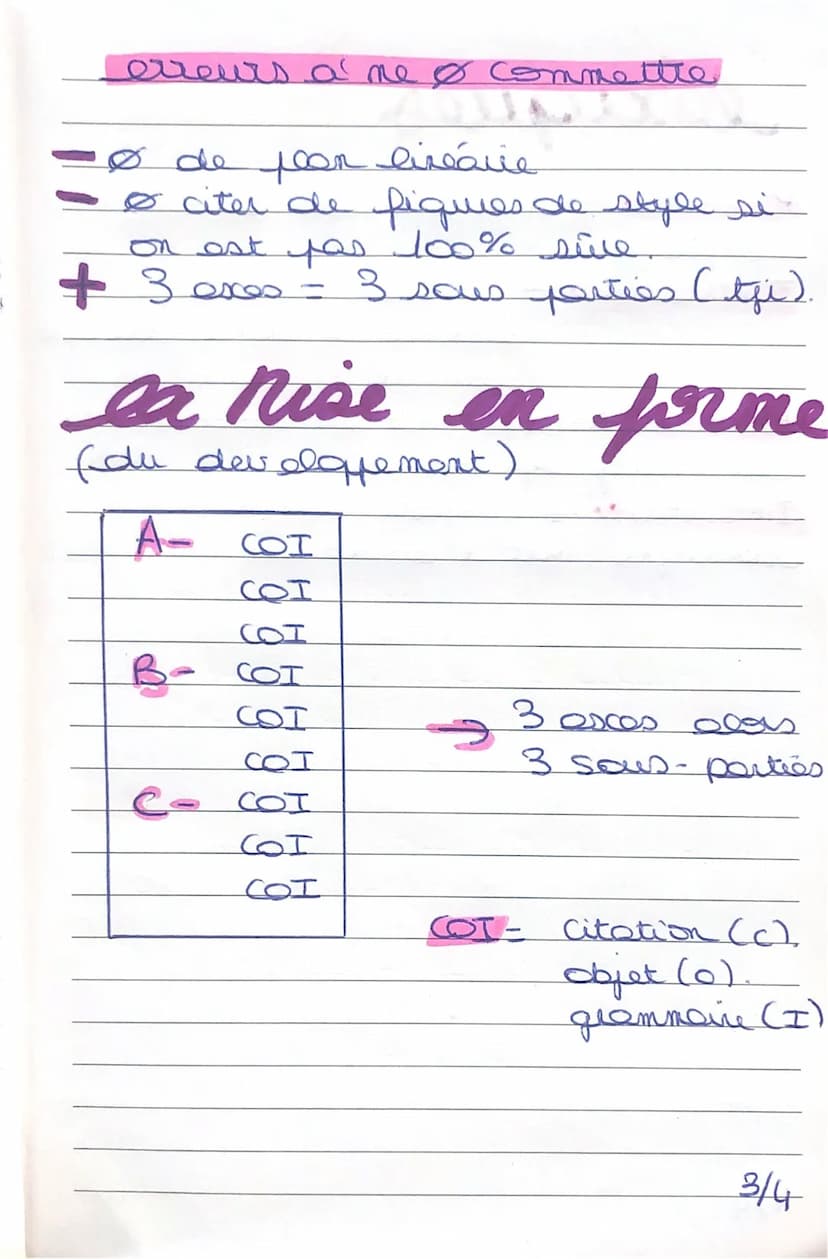 erreurs à ne ∅ commettre
- ∅ de plan linéaire
- ∅ citer de figures de style si
on est pas 100% sûre.
+ 3 axes = 3 sous parties (tjs).
La Mise en forme
(du developpement)
A- COI
COI
COI
B- COI
COI
COI
C- COI
COI
COI
→ 3 axes alors
3 sous-parties
COI = citation (c).
objet (o).
grammaire (I)
3/4